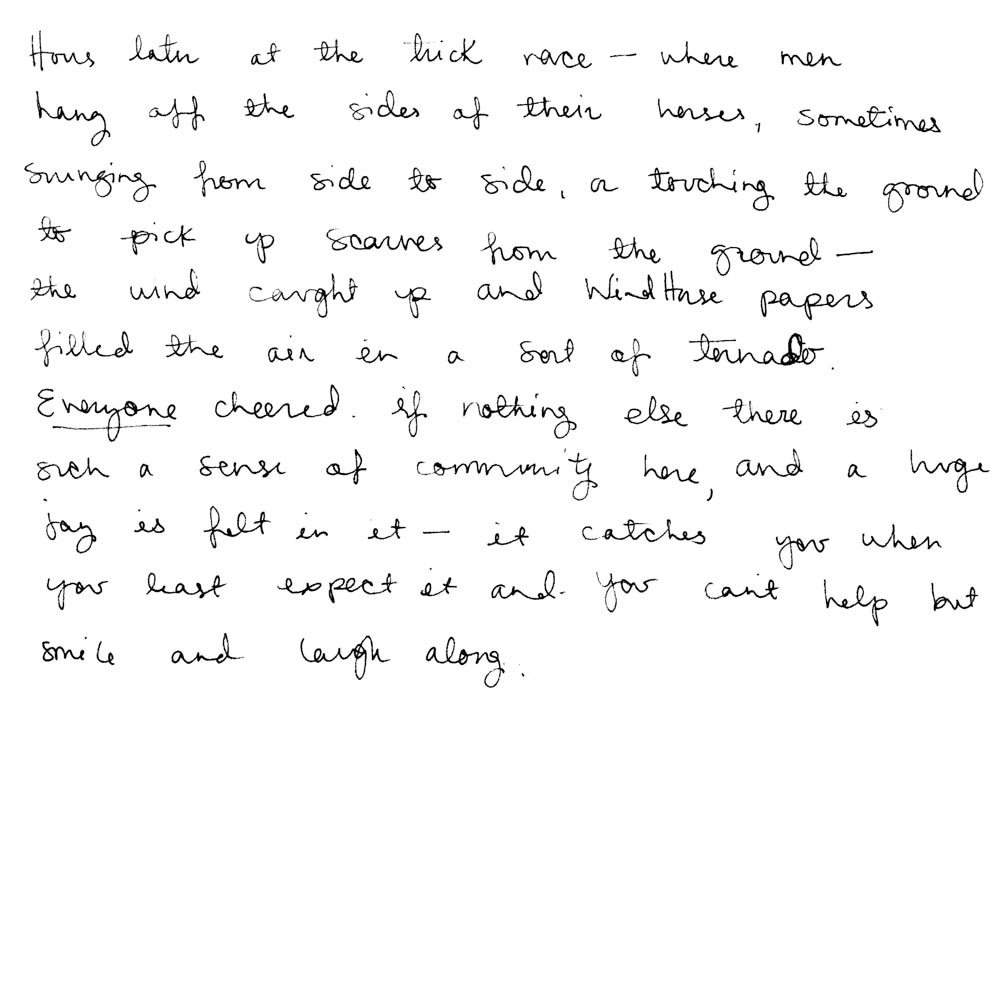 Hours later at the trick race — where men
hang off the sides of their horses, sometimes
swinging from side to side, or touching the ground
to pick up scarves from the ground —
the wind caught up and WindHorse papers
filled the air in a sort of tornado.
Everyone cheered. if nothing else there is
such a sense of community here, and a huge
joy is felt in it — it catches you when
you least expect it and. You can't help but
smile and laugh along.